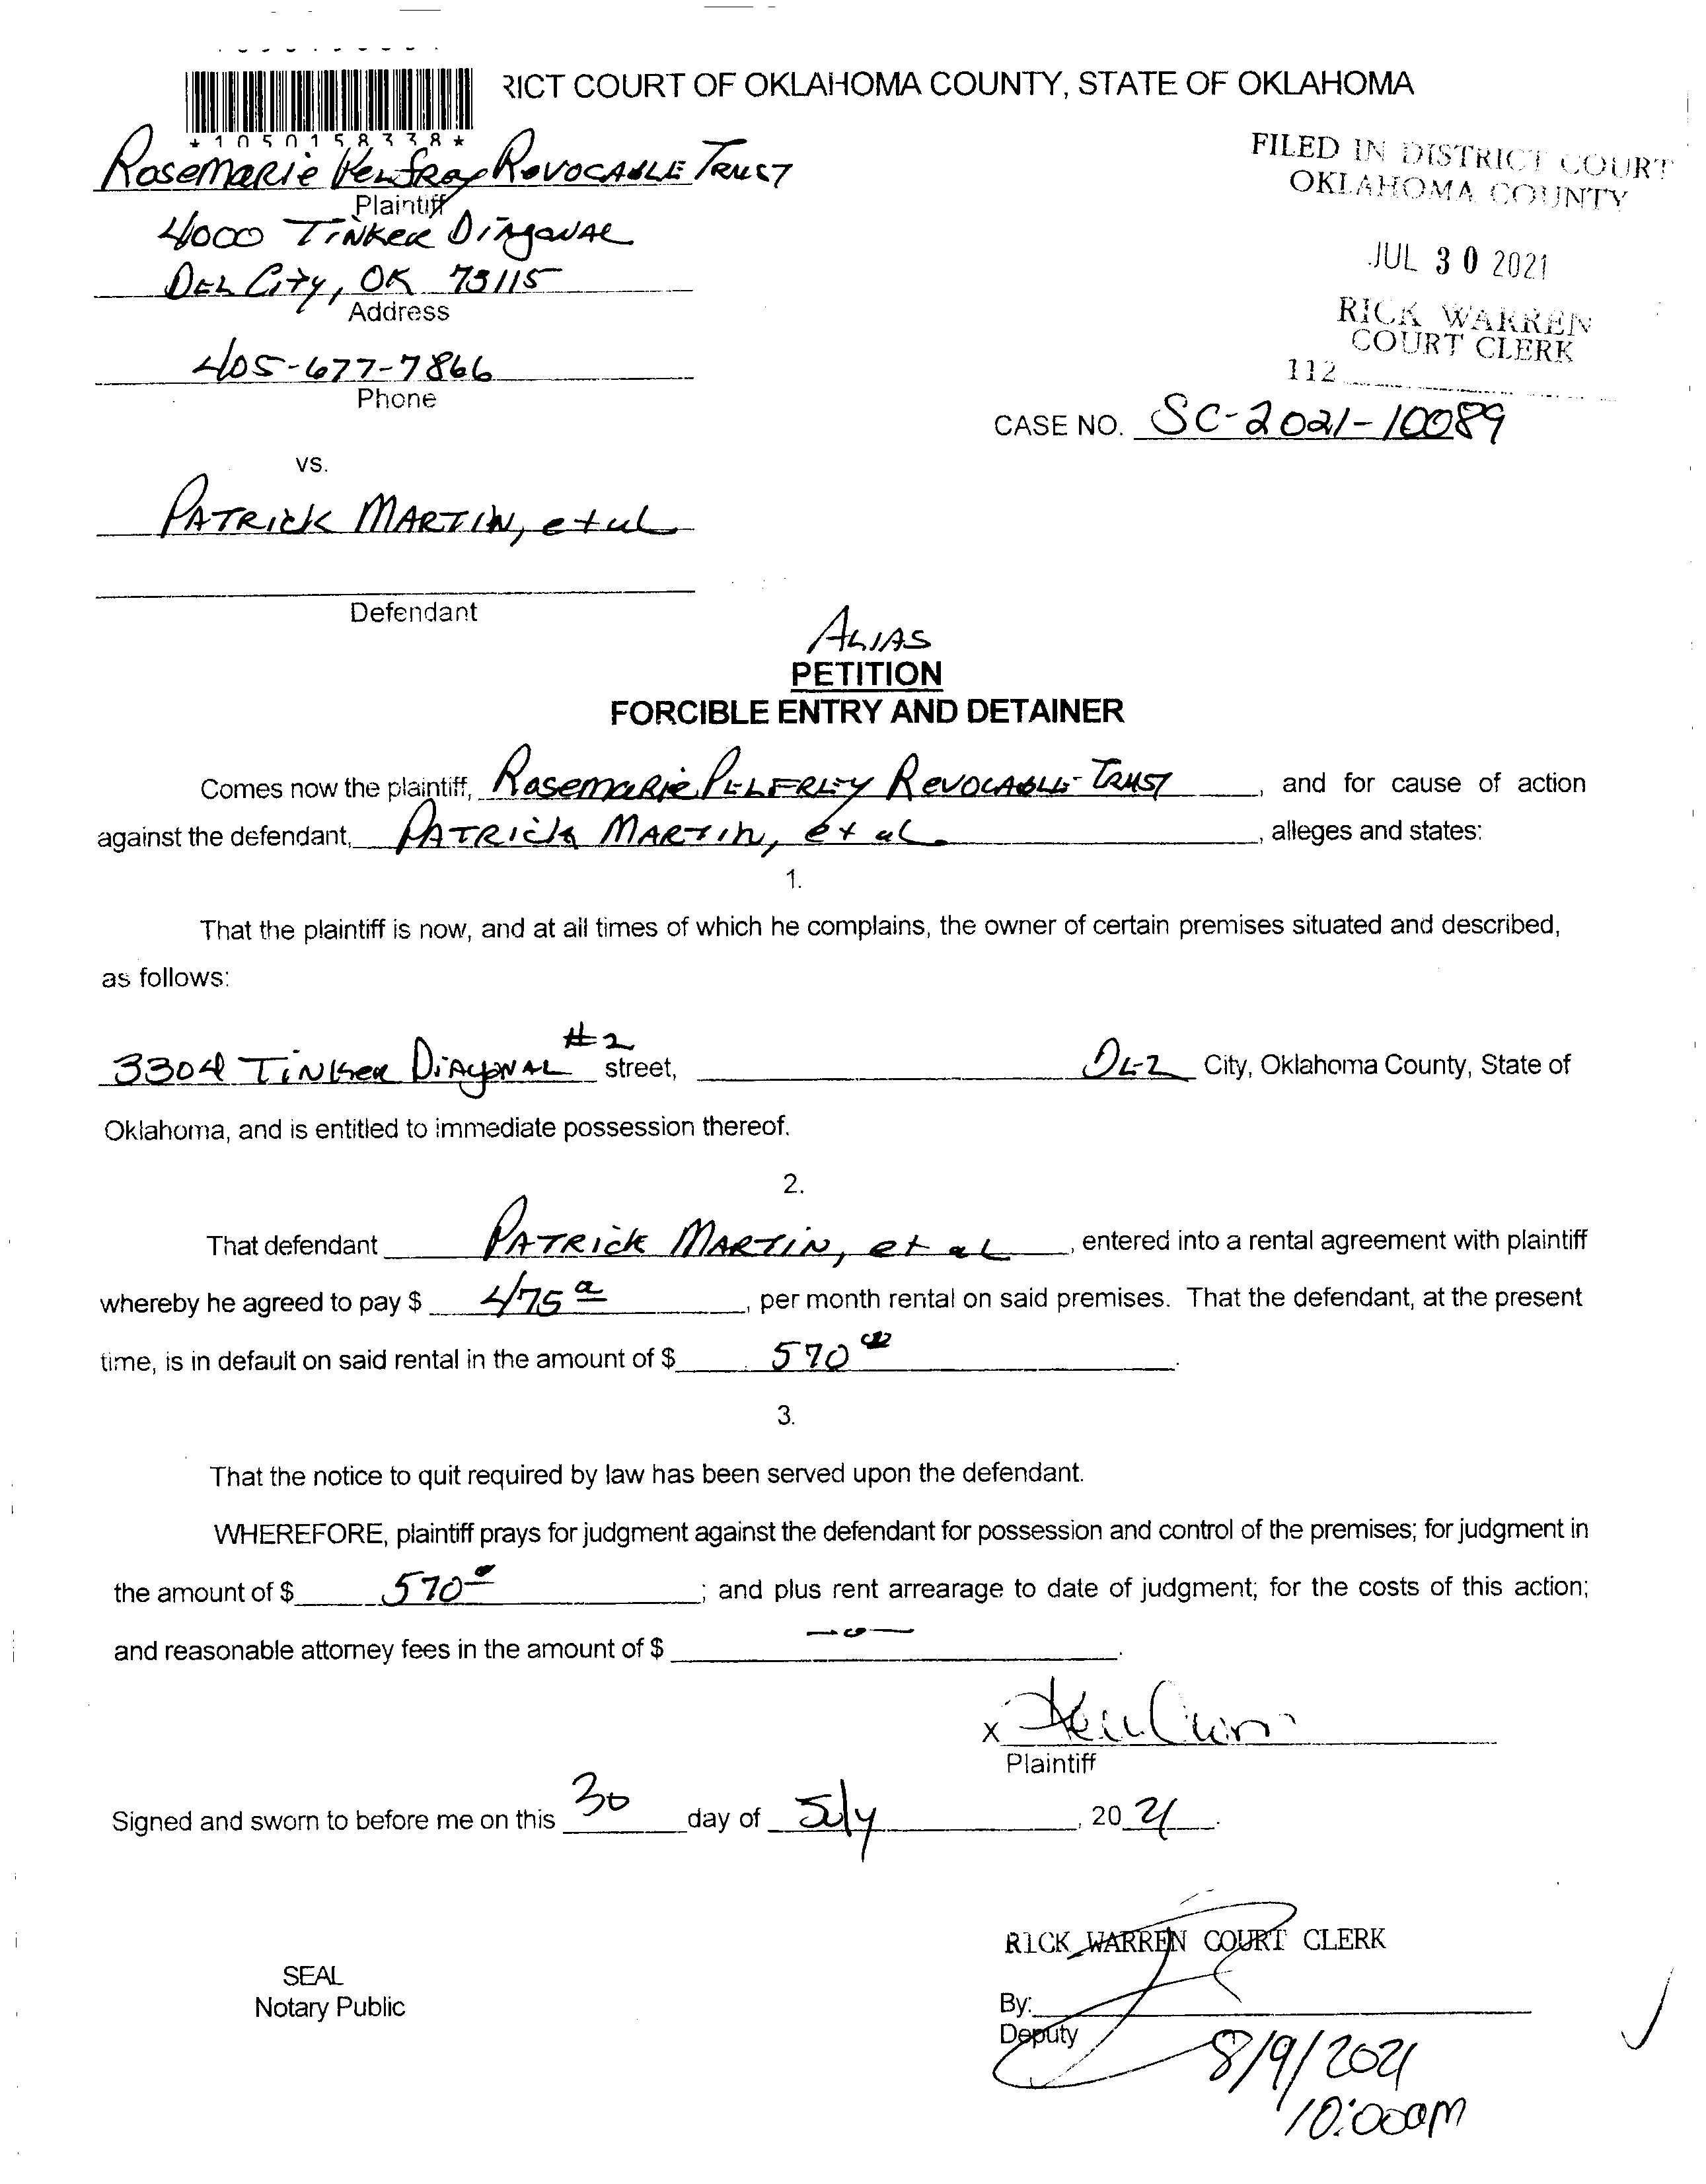 RICT COURT OF OKLAHOMA COUNTY, STATE OF OKLAHOMA
*1050158338*
FILED IN DISTRICT COURT
OKLAHOMA COUNTY
JUL 30 2021
RICK WARREN
COURT CLERK
112
Rosemarie Revocable Trust
Plaintiff
4000 Tinker Diagonal
Del City, OK 73115
Address
405-677-7866
Phone
CASE NO. SC-2021-10089
vs.
Patrick Martin, et al
Defendant
Alias
PETITION
FORCIBLE ENTRY AND DETAINER
Comes now the plaintiff, Rosemarie Pelfrey Revocable Trust, and for cause of action
against the defendant, Patrick Martin, et al, alleges and states:
1.
That the plaintiff is now, and at all times of which he complains, the owner of certain premises situated and described,
as follows:
3304 Tinker Diagonal #2 street, Del City, Oklahoma County, State of
Oklahoma, and is entitled to immediate possession thereof.
2.
That defendant Patrick Martin, et al, entered into a rental agreement with plaintiff
whereby he agreed to pay $ 475, per month rental on said premises. That the defendant, at the present
time, is in default on said rental in the amount of $ 570.
3.
That the notice to quit required by law has been served upon the defendant.
WHEREFORE, plaintiff prays for judgment against the defendant for possession and control of the premises; for judgment in
the amount of $ 570; and plus rent arrearage to date of judgment; for the costs of this action;
and reasonable attorney fees in the amount of $ -0-.
X
Plaintiff
Signed and sworn to before me on this 30 day of July, 2021.
RICK WARREN COURT CLERK
SEAL
Notary Public
By:
Deputy
8/9/2021
10:00am